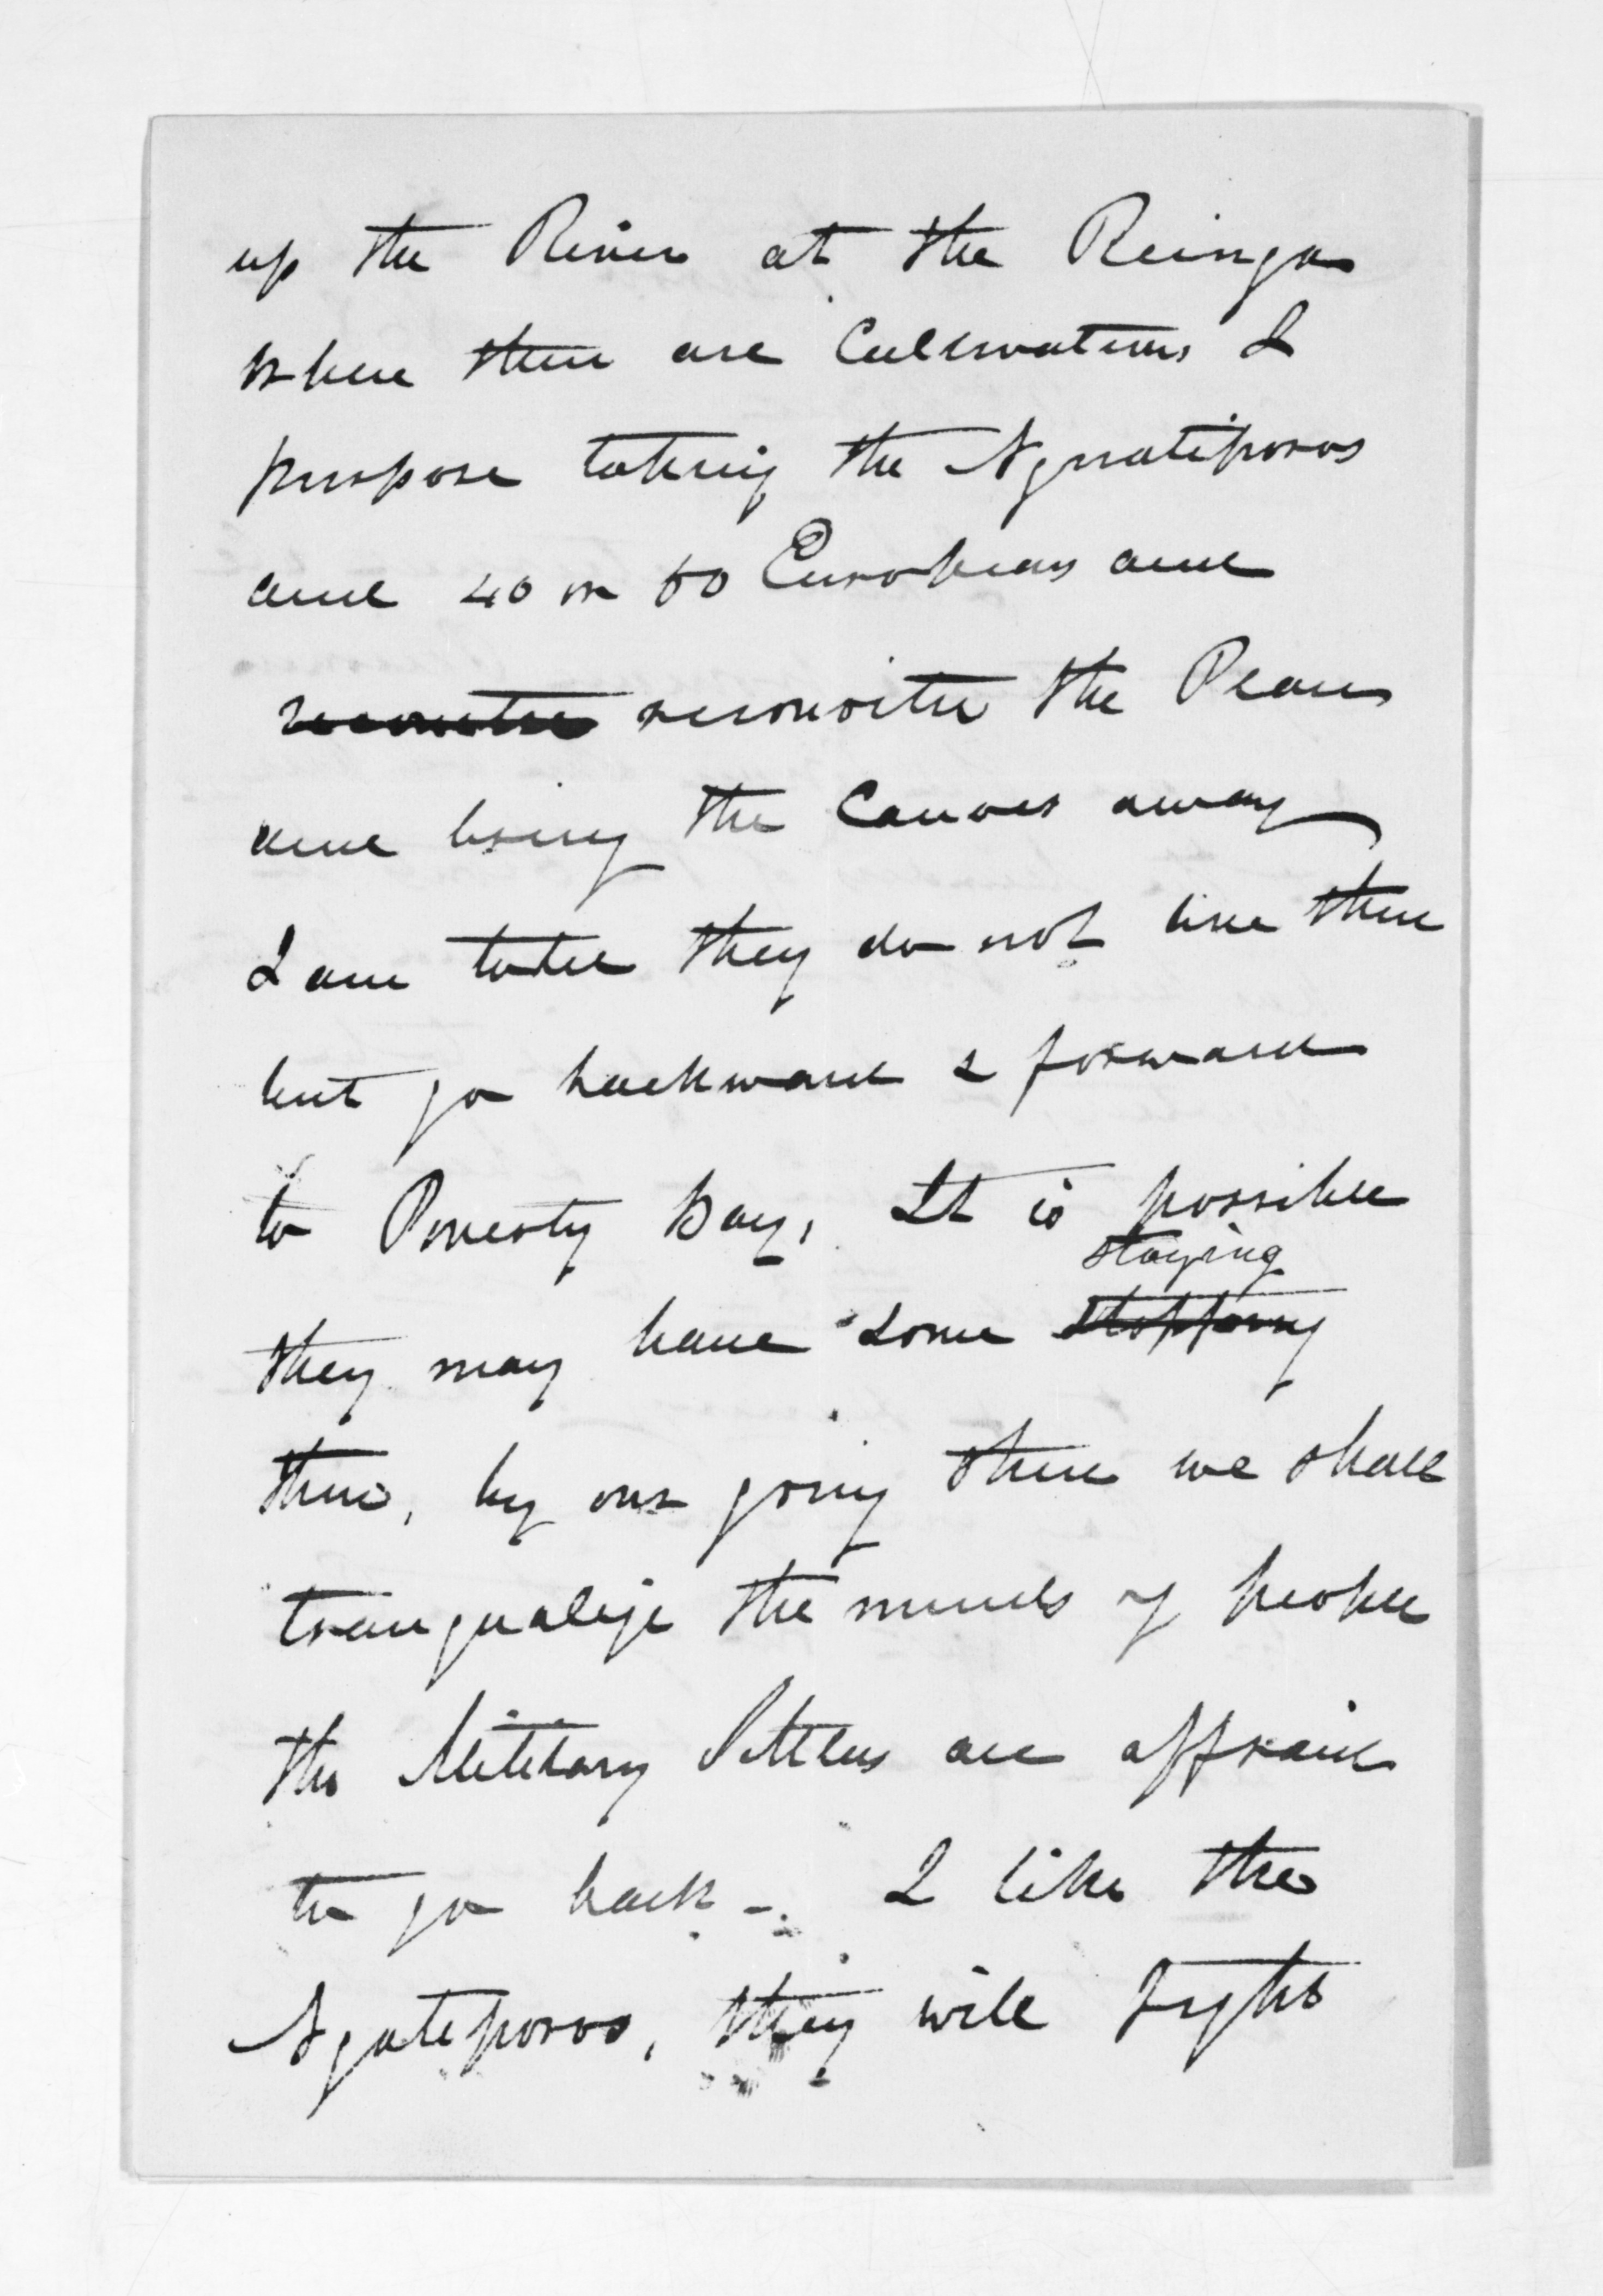 up the River at the Reinga
where there are Cultivations I
purpose taking the Nguatiporos
and 40 or 50 Europeans and
reconoitre the Place
and bring the Canoes away
I am told they do not live there
but go backward & forward
to Poverty Bay, It is possible
staying
they may have some stopping
there, by our going there we shall
tranqualize the minds of people
the Military Settlers are affraid
to go back - I like the
Ngateporos, they will fight